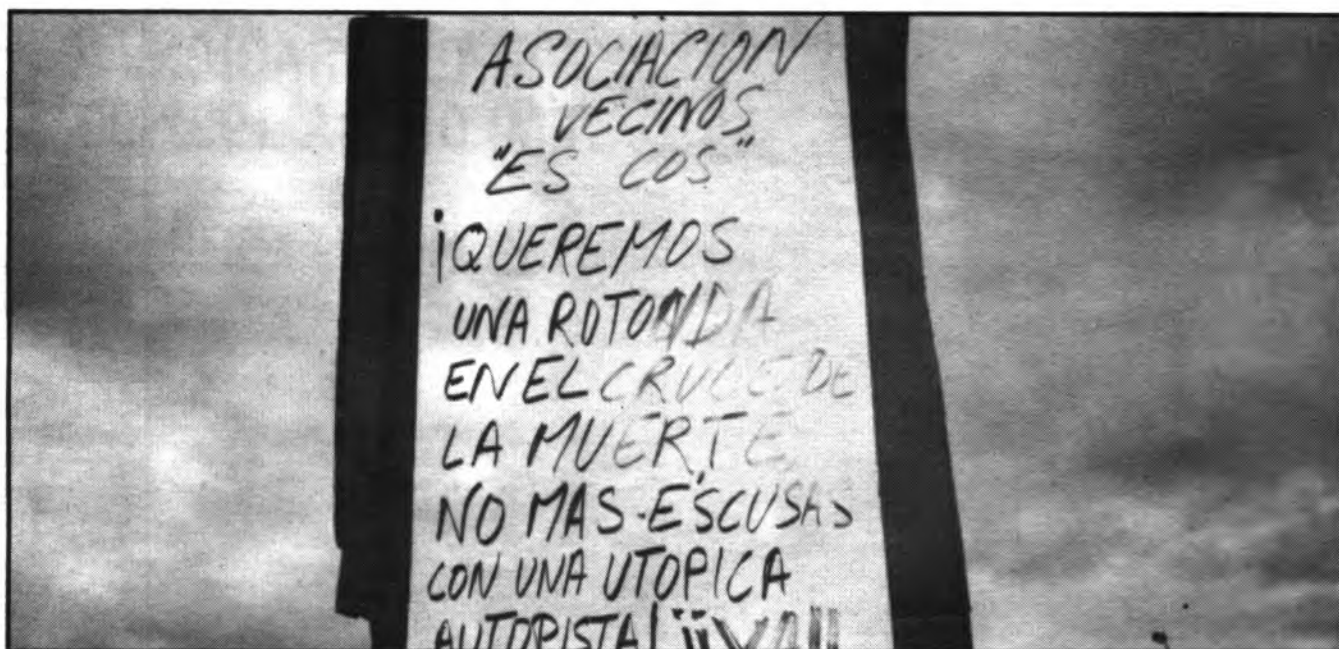 ASOCIACION
VECINOS
"ES COS"
¡QUEREMOS
UNA ROTONDA
EN EL CRUCE DE
LA MUERTE,
NO MAS ESCUSAS
CON UNA UTOPICA
AUTOPISTA! ¡¡YA!!